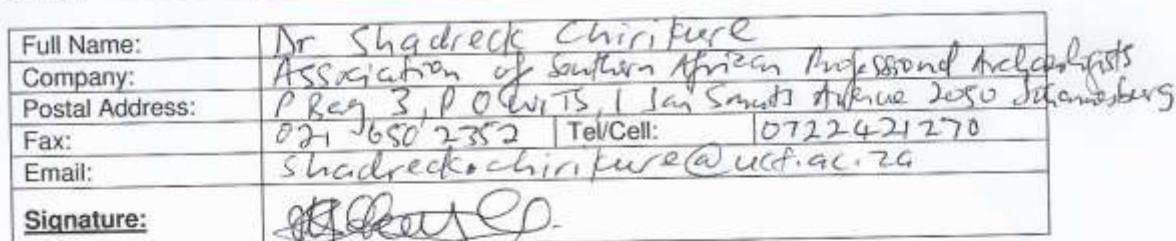 Full Name: Dr Shadreck Chirikure
Company: Association of Southern African Professional Archaeologists
Postal Address: P Bag 3, P O WITS, 1 Jan Smuts Avenue 2050 Johannesburg
Fax: 021 650 2352 Tel/Cell: 0722421270
Email: shadreck.chirikure@uct.ac.za
Signature: